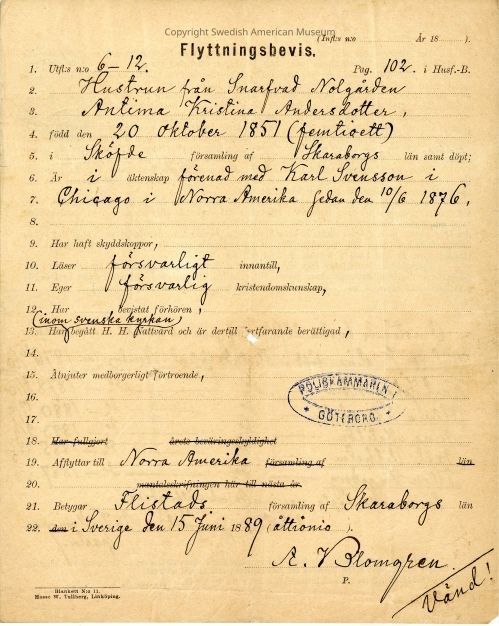 Copyright Swedish American Museum
(Inft: n:o År 18 ).
Flyttningsbevis.
1. Utfl: n:o 6-12. Pag. 102. i Husf.-B.
2. Hustrun från Snarfvad Nolgården
3. Antima Kristina Andersdotter,
4. född den 20 oktober 1851 (femtioett)
5. i Sköfde församling af Skaraborgs län samt döpt;
6. Är i äktenskap förenad med Karl Svensson i
7. Chicago i Norra Amerika sedan den 10/6 1876,
8.
9. Har haft skyddskoppor,
10. Läser försvarligt innantill,
11. Eger försvarlig kristendomskunskap,
12. Har bevistat förhören,
(inom svenska kyrkan)
13. Har begått H. H. Nattvard och är dertill fortfarande berättigad,
14.
15. Åtnjuter medborgerligt förtroende,
16.
17.
POLISKAMMAREN I
* GÖTEBORG. *
18. Har fullgjort årets beväringsskyldighet
19. Afflyttar till Norra Amerika församling af län
20. mantalsskrifningen här till nästa år.
21. Betygar Flistads församling af Skaraborgs län
22. den i Sverige den 15 Juni 1889 (åttionio).
A. V Blomgren.
P.
Vänd!
Blankett N:o 11.
Hasse W. Tullberg, Linköping.